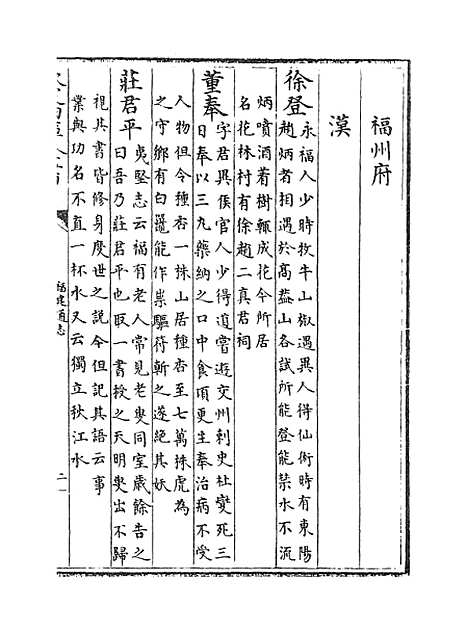 福州府
漢
徐登永福人少時牧牛山椒遇異人得仙術時有東陽
趙炳者相遇於高葢山各試所能登能禁水不流
炳噴酒着樹輒成花今所居
名花林村有徐趙二真君祠
董奉字君異侯官人少得道嘗遊交州刺史杜燮死三
日奉以三九藥納之口中食頃更生奉治病不受
人物但令種杏一株山居種杏至七萬株虎為
之守鄉有白鼉能作祟驅符斬之遂絕其妖
莊君平夷堅志云福有老人常見老叟同室歲餘告之
曰吾乃莊君平也取一書授之天明叟出不歸
視其書皆修身度世之説今但記其語云事
業與功名不直一杯水又云獨立秋江水
福建通志
二一